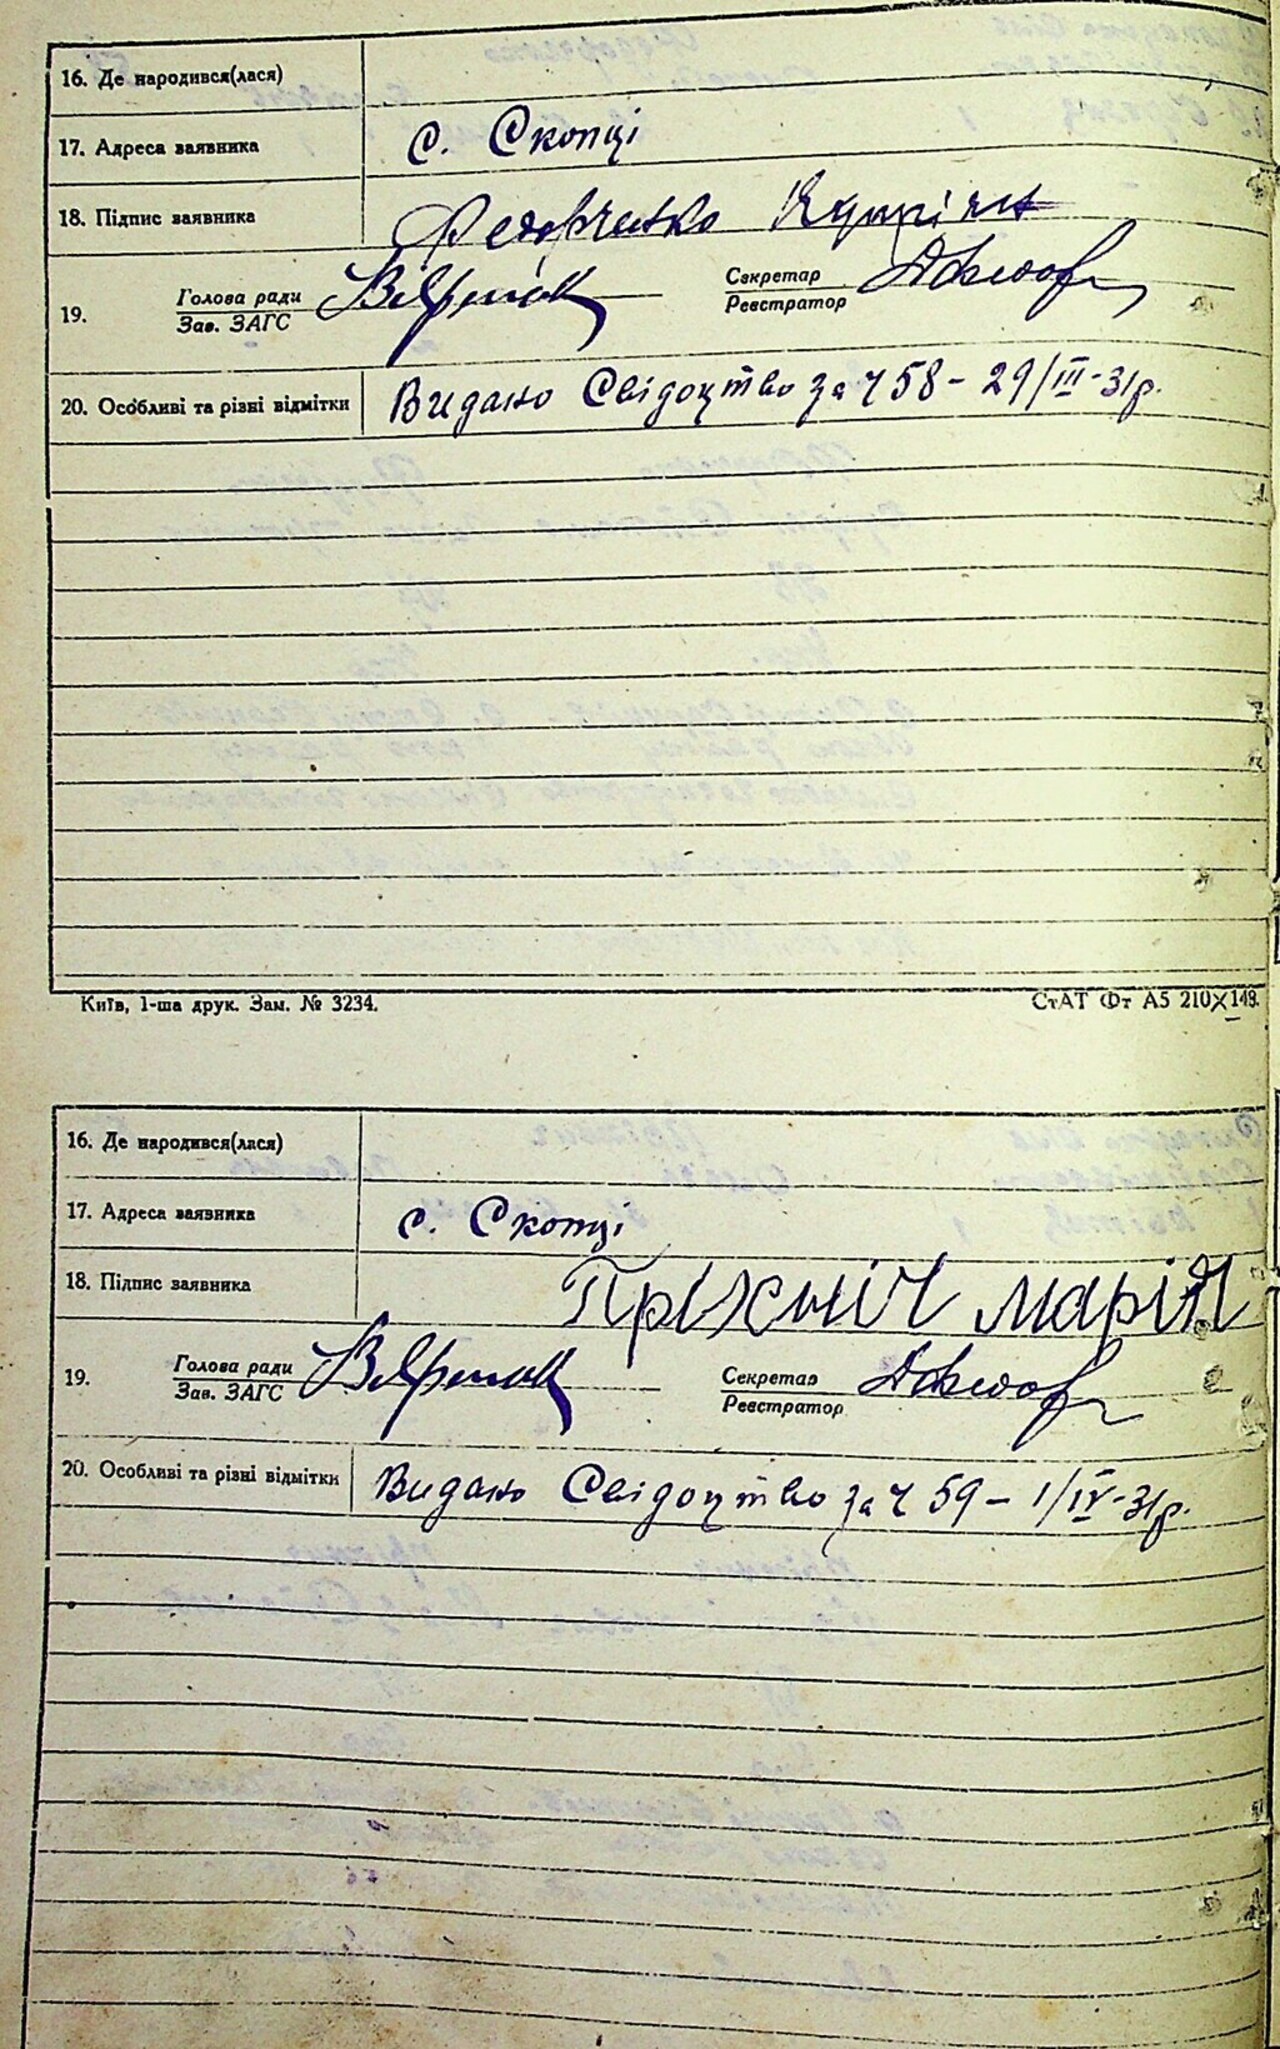 16. Де народився(лася)
17. Адреса заявника с. Скопці
18. Підпис заявника Федорченко
19. Голова ради Секретар
Зав. ЗАГС Реєстратор
20. Особливі та різні відмітки Видано Свідоцтво за ч 58 – 29/III-31р.
Київ, 1-ша друк. Зам. № 3234. СтАТ Фт А5 210×148.
16. Де народився(лася)
17. Адреса заявника с. Скопці
18. Підпис заявника марія
19. Голова ради Секретар
Зав. ЗАГС Реєстратор
20. Особливі та різні відмітки Видано Свідоцтво за ч 59 – 1/IV-31р.